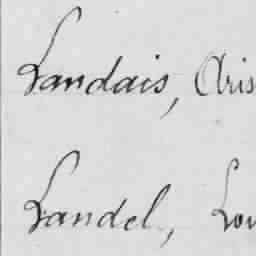 Landais, Aris
Landel, Lou